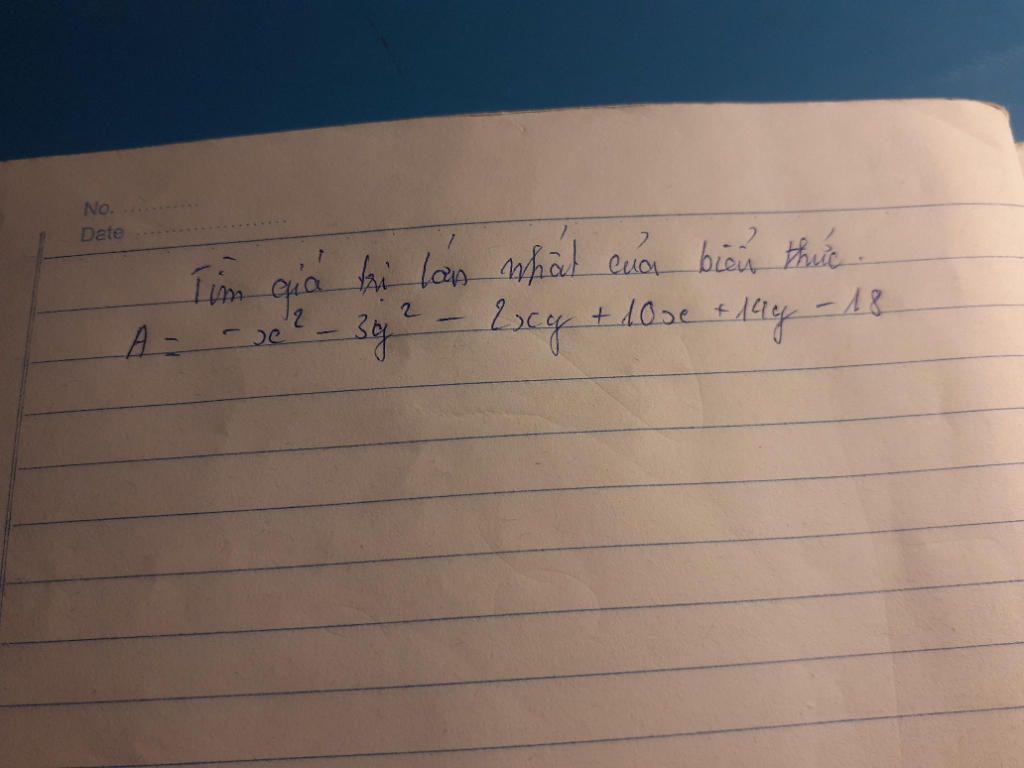 No. ............
Date ........................
Tìm giá trị lớn nhất của biểu thức.
A = -x² - 3y² - 2xy + 10x + 14y - 18